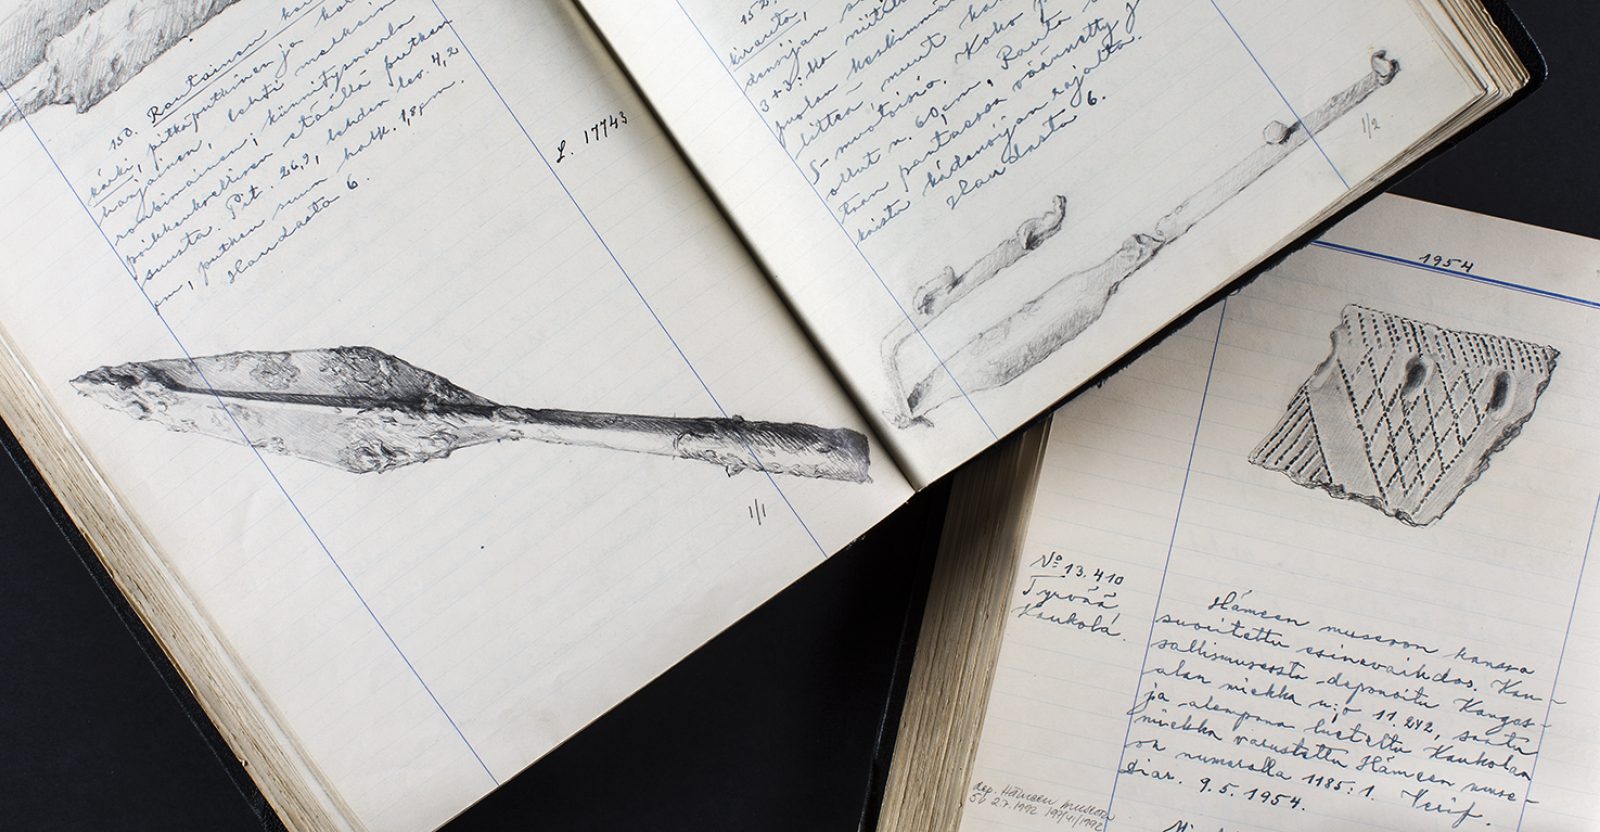 150. Rautainen
kärki, pitkäputkinen ja
harjainen, lehti melkein
rombimainen; kiinnitysnaula
poikkeuksellisen etäällä putken
suusta. Pit. 26,9, lehden lev. 4,2
cm, putken suun halk. 1,8 cm.
Haudasta 6.
L. 17743
1/1
kirausta,
3+3:ka
puolen keskimmä
muut
S-muotoisia. Koko
ollut n. 60 cm, Rauta
pantaessa väännetty
kaistu kädensijan rajalta.
Haudasta 6.
1/2
1954
No 13.410
Tyrvää
Kaukola.
Hämeen museon kanssa
suoritettu esinevaihdos. Kan-
sallismuseosta deponoitu Kangas-
alan miekka n:o 11.242, saatu
ja alempana lueteltu Kaukolan
miekka varustettu Hämeen muse-
on numerolla 1185:1. Verif.
Diar. 9.5.1954.
dep. Hämeen museoon